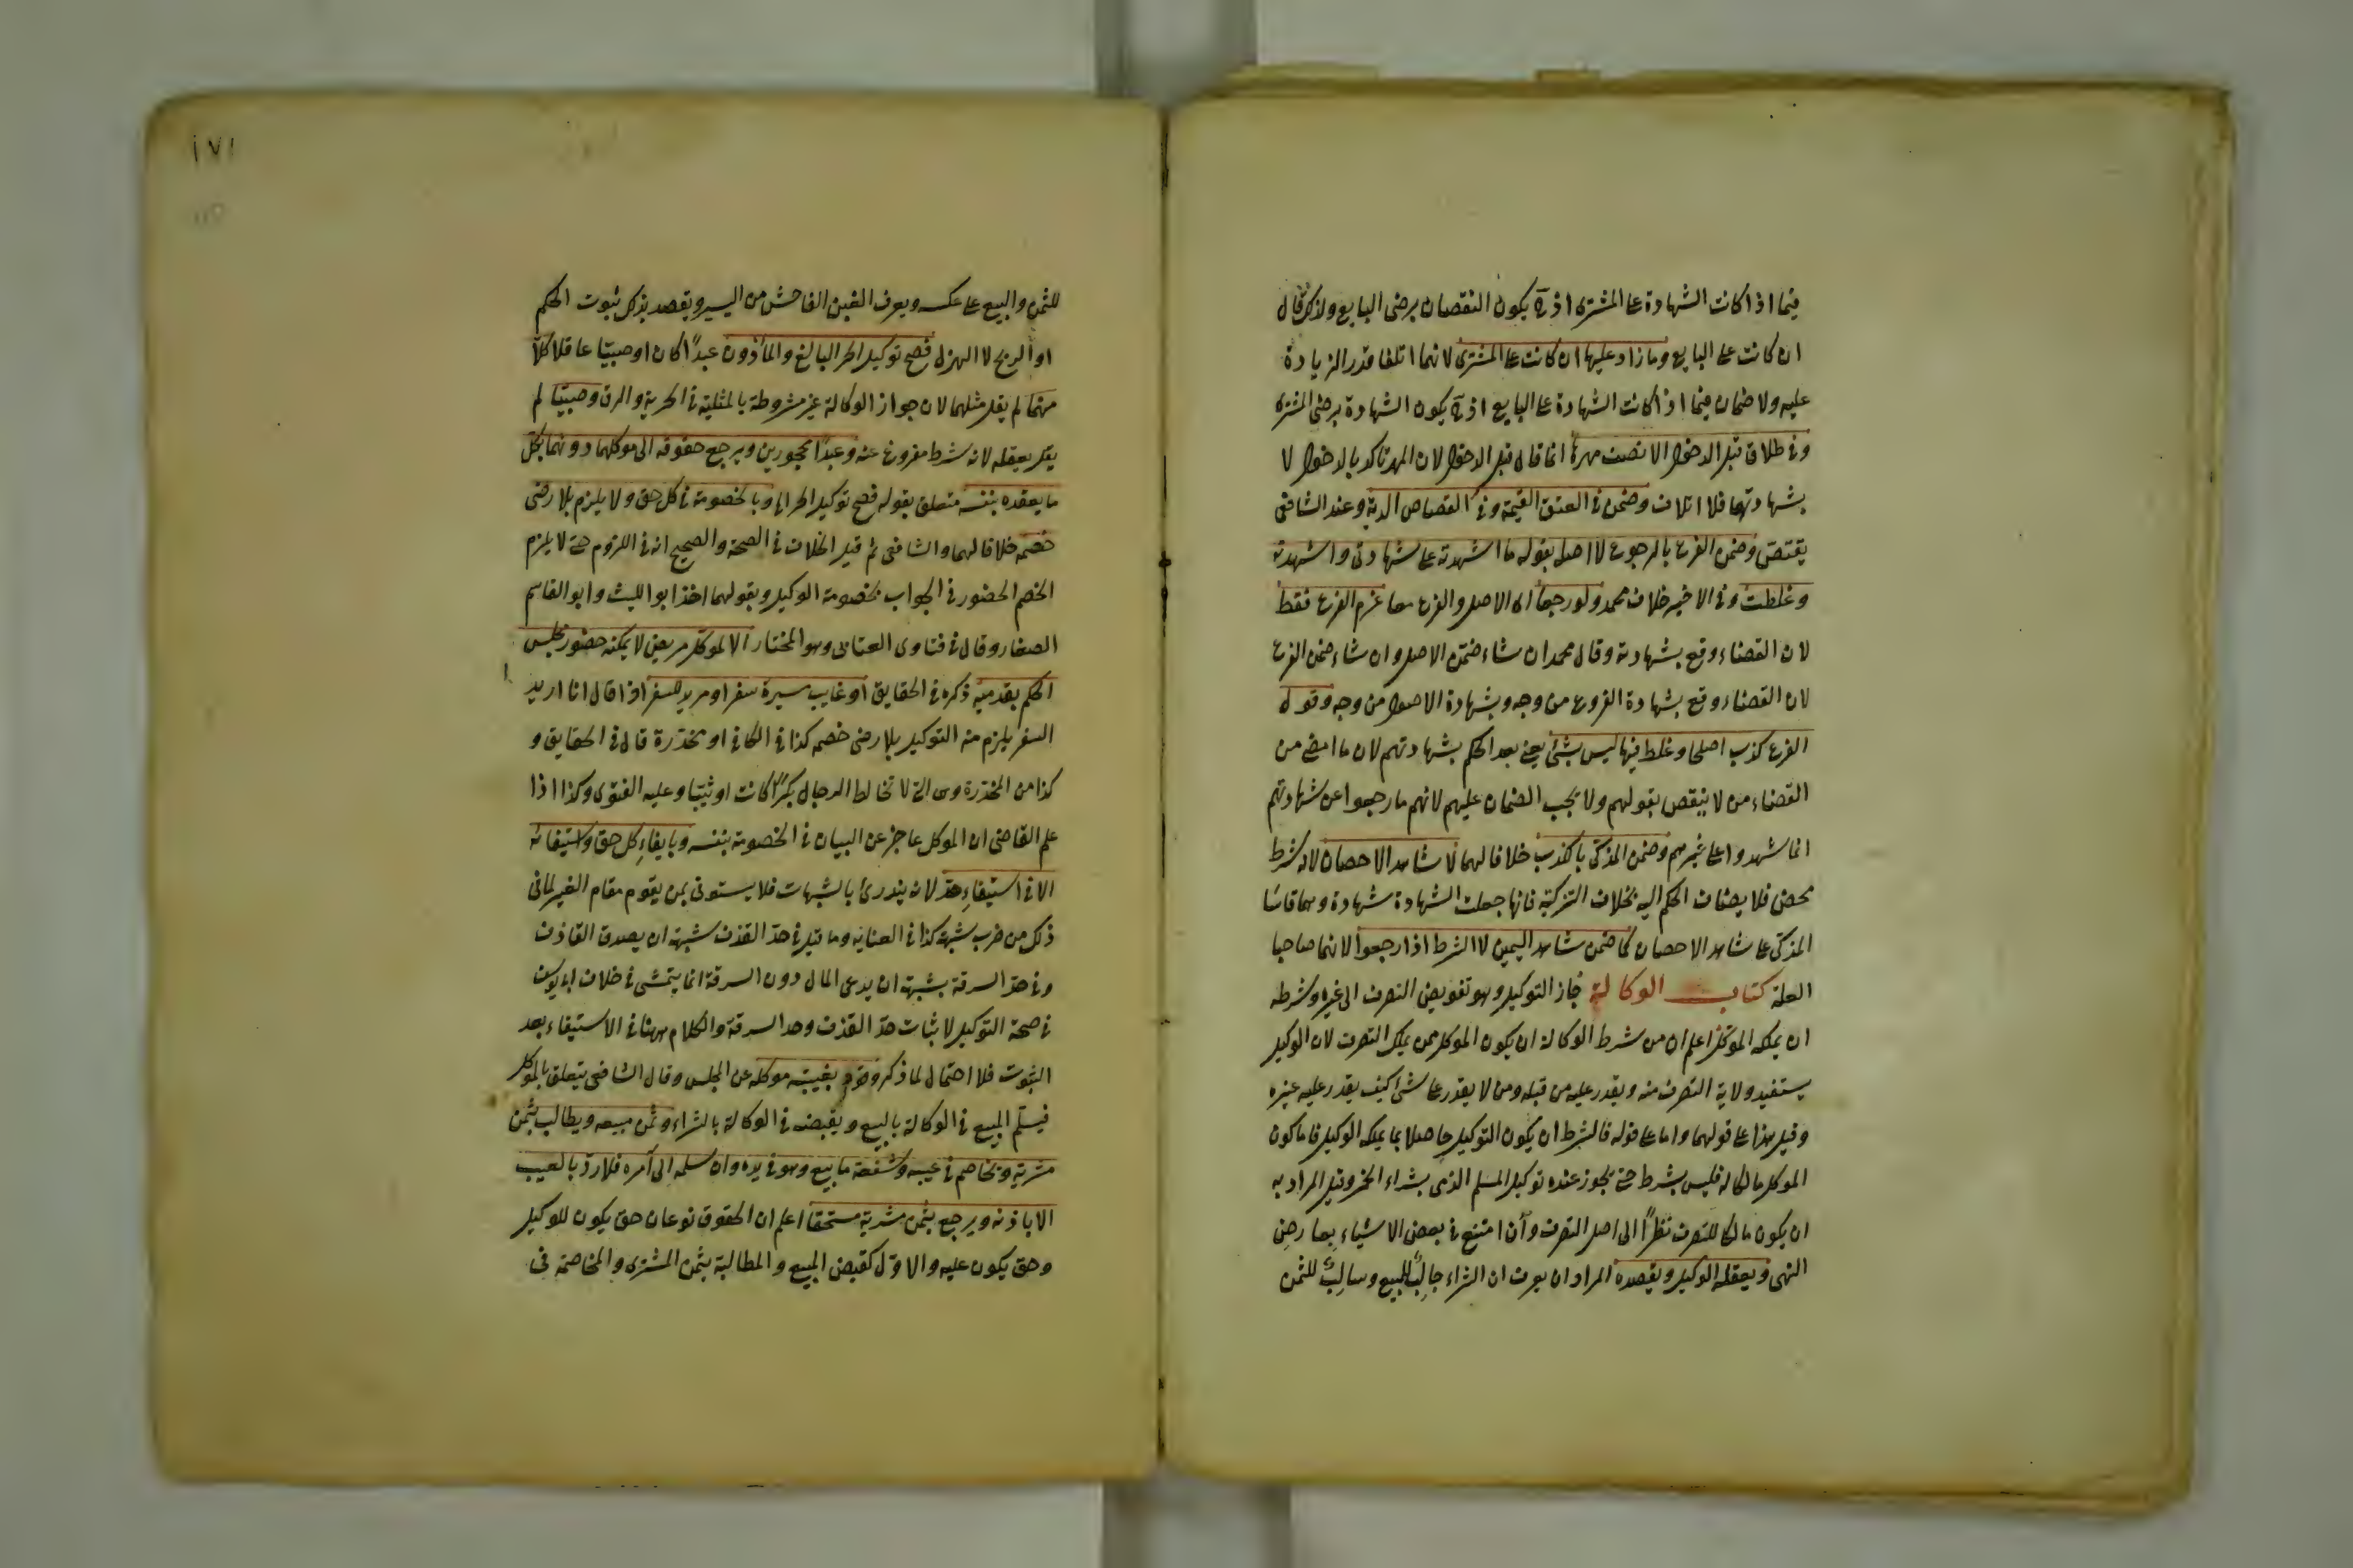 فيما اذا كانت الشهادة على المشترى اذ ح يكون النقصان برضى البايع ولذلك قال
ان كانت على البايع وما زاد عليها ان كانت على المشترى لانهما اتلفا قدر الزيادة
عليه ولا ضمان فيما اذا كانت الشهادة على البايع اذ ح يكون الشهادة برضى المشترى
وفى طلاق قبل الدخول الا نصف مهرها انما قال قبل الدخول لان المهر تاكد بالدخول لا
بشهادتهما فلا اتلاف وضمن فى العتق القيمة وفى القصاص الدية وعند الشافعى
يقتص وضمن الفرع بالرجوع لا اصل بقوله ما اشهدته على شهادتى واشهدته
وغلطت وفى الاخير خلاف محمد ولو رجعا اى الاصل والفرع معا غرم الفرع فقط
لان القضاء وقع بشهادته وقال محمد ان شاء ضمن الاصل وان شاء ضمن الفرع
لان القضاء وقع بشهادة الفروع من وجه وبشهادة الاصول من وجه وقول
الفرع كذب اصلى او غلط فيها ليس بشئ يعنى بعد الحكم بشهادتهم لان ما امضى من
القضاء من لا ينقص بقولهم ولا يجب الضمان عليهم لانهم ما رجعوا عن شهادتهم
انما شهدوا على غيرهم وضمن المذكى بالكذب خلافا لهما لا شاهد الاحصان لانه شرط
محض فلا يضاف الحكم اليه بخلاف التزكية فانها جعلت الشهادة شهادة وهما قاسا
المذكى على شاهد الاحصان كما ضمن شاهد اليمين لا الشرط اذا رجعوا لانهما صاحبا
العلة كتاب الوكالة جاز التوكيل وهو تفويض التصرف الى غيره وشرطه
ان يملكه الموكل اعلم ان من شرط الوكالة ان يكون الموكل ممن يملك التصرف لان الوكيل
يستفيد ولاية التصرف منه ويقدر عليه من قبله ومن لا يقدر على شئ كيف يقدر عليه غيره
وقيل هذا على قولهما واما على قوله فالشرط ان يكون التوكيل حاصلا بما يملكه الوكيل فاما كون
الموكل مالكا له فليس بشرط حتى يجوز عنده توكيل المسلم الذمى بشراء الخمر وقيل المراد به
ان يكون مالكا للتصرف نظرا الى اصل التصرف وان امتنع فى بعض الاشياء بعارض
النهى ويعقله الوكيل ويقصده المراد ان يعرف ان الشراء جالب للمبيع وسالب للثمن
١٧١
للثمن والبيع على عكسه ويعرف الغبن الفاحش من اليسير ويقصد بذلك ثبوت الحكم
او الربح لا الهزل فصح توكيل الحر البالغ والماذون عبدا كان او صبيا عاقلا كلا
منهما لم يقل مثلهما لان جواز الوكالة غير مشروطة بالمثلية فى الحرية والرق وصبيا لم
يقل يعقله لانه شرط مفروغ عنه وعبدا محجورين ويرجع حقوقه الى موكلهما دونهما بكل
ما يعقده بنفسه متعلق بقوله فصح توكيل الحر الخ وبالخصومة فى كل حق ولا يلزم بلا رضى
خصمه خلافا لهما والشافعى ثم قيل الخلاف فى الصحة والصحيح انه فى اللزوم حتى لا يلزم
الخصم الحضور فى الجواب بخصومة الوكيل وبقولهما اخذ ابو الليث وابو القاسم
الصفار وقال فى فتاوى العتابى وهو المختار الا لموكل مريض لا يمكنه حضور مجلس
الحكم بقدميه ذكره فى الحقايق او غايب مسيرة سفر او مريد للسفر اذا قال انا اريد
السفر يلزم منه التوكيل بلا رضى خصمه كذا فى الكافى او مخدرة قال فى الحقايق و
كذا من المخدرة وهى التى لا تخالط الرجال بكرا كانت او ثيبا وعليه الفتوى وكذا اذا
علم القاضى ان الموكل عاجز عن البيان فى الخصومة بنفسه وبايفاء كل حق واستيفائه
الا فى استيفاء حد لانه يندرئ بالشبهات فلا يستوفى بمن يقوم مقام الغير لما فى
ذلك من ضرب شبهة كذا فى العناية وما قيل فى حد القذف شبهة ان يصدق القاذف
وفى حد السرقة بشبهة ان يدعى المال دون السرقة انما يتمشى فى خلاف ابى يوسف
فى صحة التوكيل لاثبات حد القذف وحد السرقة والكلام ههنا فى الاستيفاء بعد
الثبوت فلا احتمال لما ذكر وقود بغيبة موكله عن المجلس وقال الشافعى يتعلق بالموكل
فيسلم المبيع فى الوكالة بالبيع ويقبضه فى الوكالة بالشراء وثمن مبيعه ويطالب بثمن
مشريه ويخاصم فى عيبه وشفعة ما بيع وهو فى يده وان سلمه الى آمره فلا رد بالعيب
الا باذنه ويرجع بثمن مشريه مستحقا اعلم ان الحقوق نوعان حق يكون للوكيل
وحق يكون عليه والاول كقبض المبيع والمطالبة بثمن المشترى والمخاصمة فى